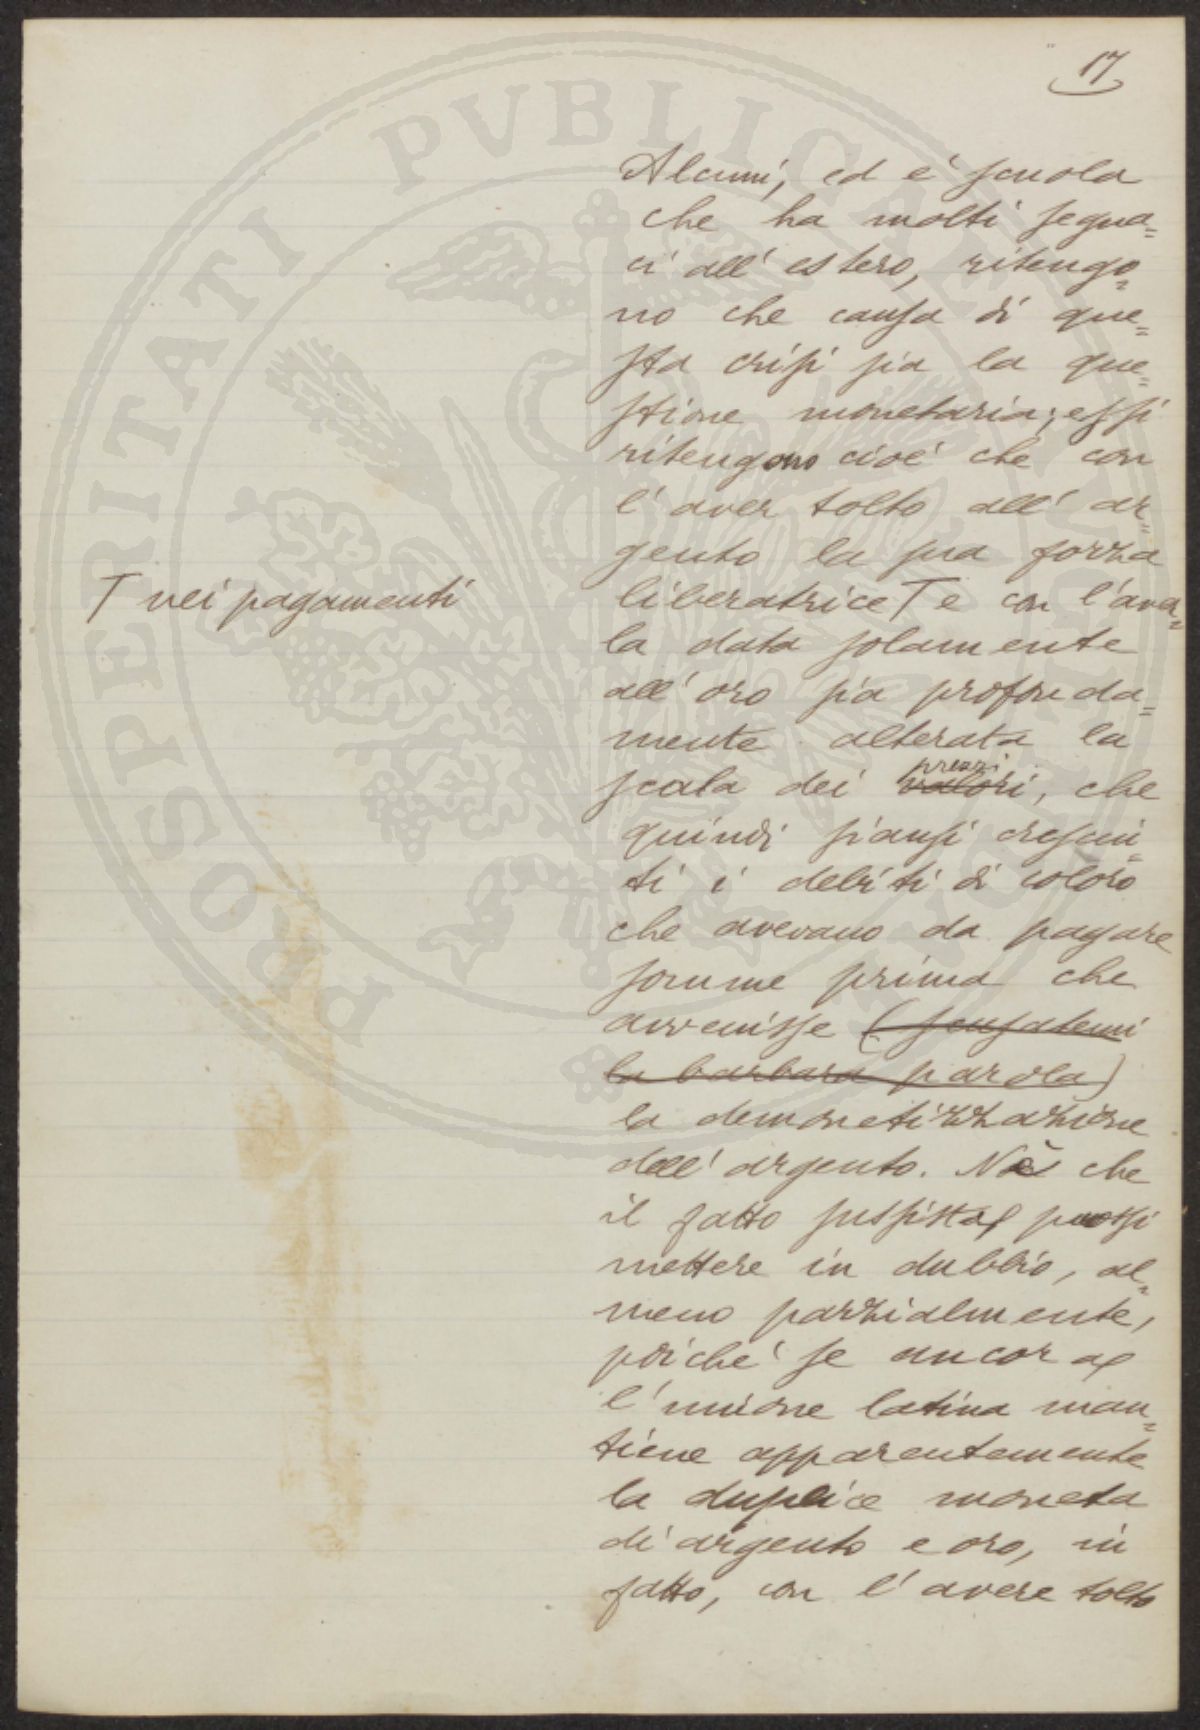 17
Alcuni, ed è scuola
che ha molti segua=
ci all'estero, ritengo=
no che causa di que=
sta crisi sia la que=
stione monetaria; essi
ritengono cioè che con
l'aver tolto all'ar=
gento la sua forza
T nei pagamenti
liberatrice T e con l'aver=
la data solamente
all'oro sia profonda=
mente alterata la
prezzi
scala dei valori, che
quindi siansi cresciu=
ti i debiti di coloro
che avevano da pagare
somme prima che
avvenisse (scusatemi
la barbara parola)
la demonetizzazione
dell'argento. Nè che
il fatto sussista puossi
mettere in dubbio, al=
meno parzialmente,
poichè se ancora
l'unione latina man=
tiene apparentemente
la duplice moneta
di argento e oro, in
fatto, con l'avere tolto
PROSPERITATI PVBLICAE